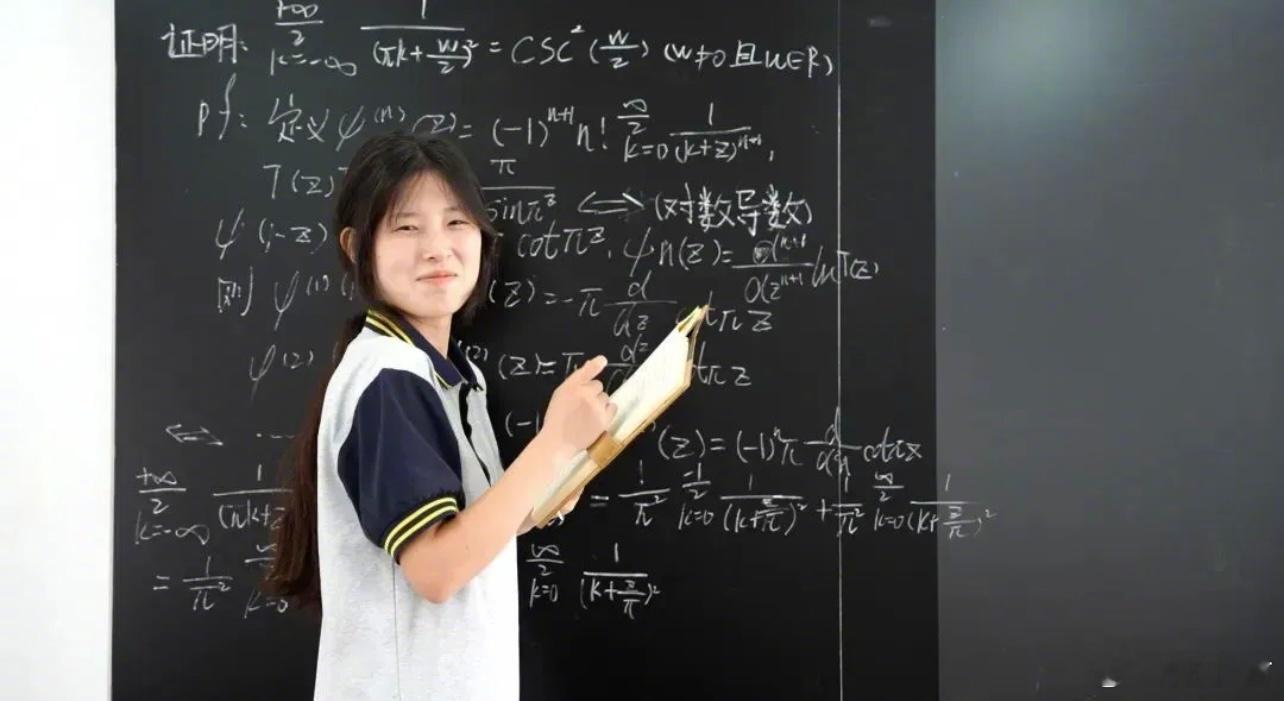 证明: +∞ Σ k=-∞ 1/(πk+w/2)² = CSC²(w/2) (w≠0且w∈R)
pf: 定义ψ⁽ⁿ⁾(z)= (-1)ⁿ⁺¹n! ∞ Σ k=0 1/(k+z)ⁿ⁺¹,
T(z) π/sinπz ⟺ (对数导数)
ψ(1-z) cotπz, ψn(z)= dⁿ⁺¹/dzⁿ⁺¹ lnT(z)
则 ψ⁽¹⁾( (z)=-π d/dz cotπz
ψ⁽²⁾ ⁽²⁾(z)=π d²/ cotπz
⟺ ... (-1) (z)=(-1)ⁿπ d/dzⁿ cotπz
+∞ Σ k=-∞ 1/(πk+z = 1/π² -1 Σ k=0 1/(k+z/π)² + 1/π² ∞ Σ k=0 1/(k+z/π)²
= 1/π² ∞ Σ k=0 ∞ Σ k=0 1/(k+z/π)²